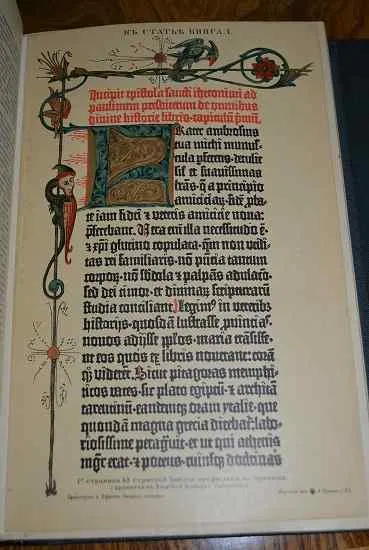 КЪ СТАТЬѢ КНИГА I.
Incipit epistola sancti iheronimi ad
paulinum presbiterum de omnibus
divine historie libris· capitulū pmū·
Frater ambrosius
tua michi munus-
cula pferens· detulit
sił et suavissimas
lrās· q̄ a principio
amicicias· fidē pba-
te iam fidei et veteris amicicie nova:
pferebant. Vera enī illa necessitudo ē·
et xpi glutino copulata· qm̄ non utili-
tas rei familiaris· nō pncia tantum
corporū· nō sbdola et palpās adulacō·
sed dei timor· et divinarū scripturarū
studia conciliant. Legimᵒ in veteribᵒ
historijs· quosdā lustrasse pvincias·
novos adijsse pplos· maria trāsisse·
ut eos quos ex libris noverant: corā
q; viderēt. Sicut pitagoras memphi-
ticos vates· sic plato egiptū· et architā
tarentinū· eandemq; oram ytalie· que
quondā magna grecia dicebat̄: labo-
riosissime peragvit· et ut qui athenis
mgr̄ erat· et potens· cuiusq; doctrinas